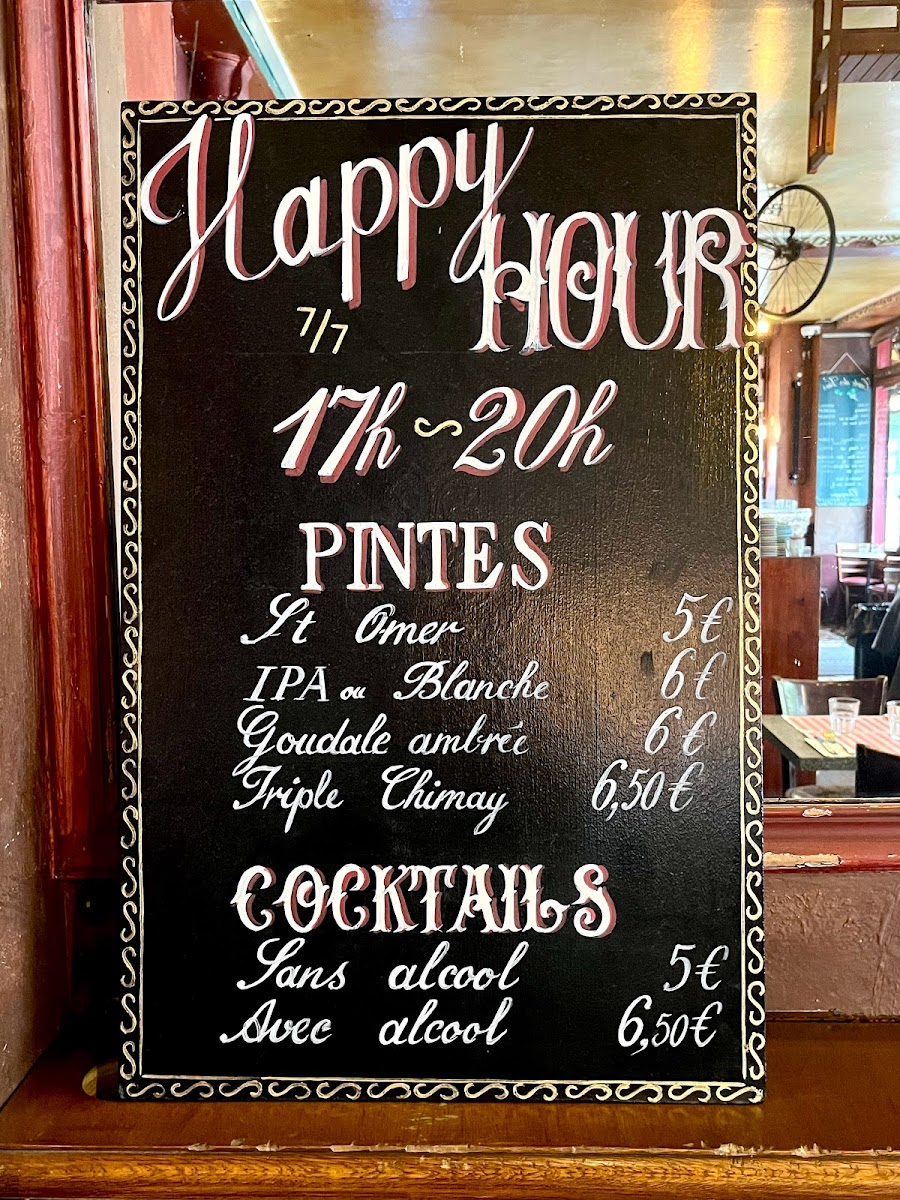 Happy
HOUR
7/7
17h ~ 20h
PINTES
St Omer 5€
IPA ou Blanche 6€
Goudale ambrée 6€
Triple Chimay 6,50€
COCKTAILS
Sans alcool 5€
Avec alcool 6,50€